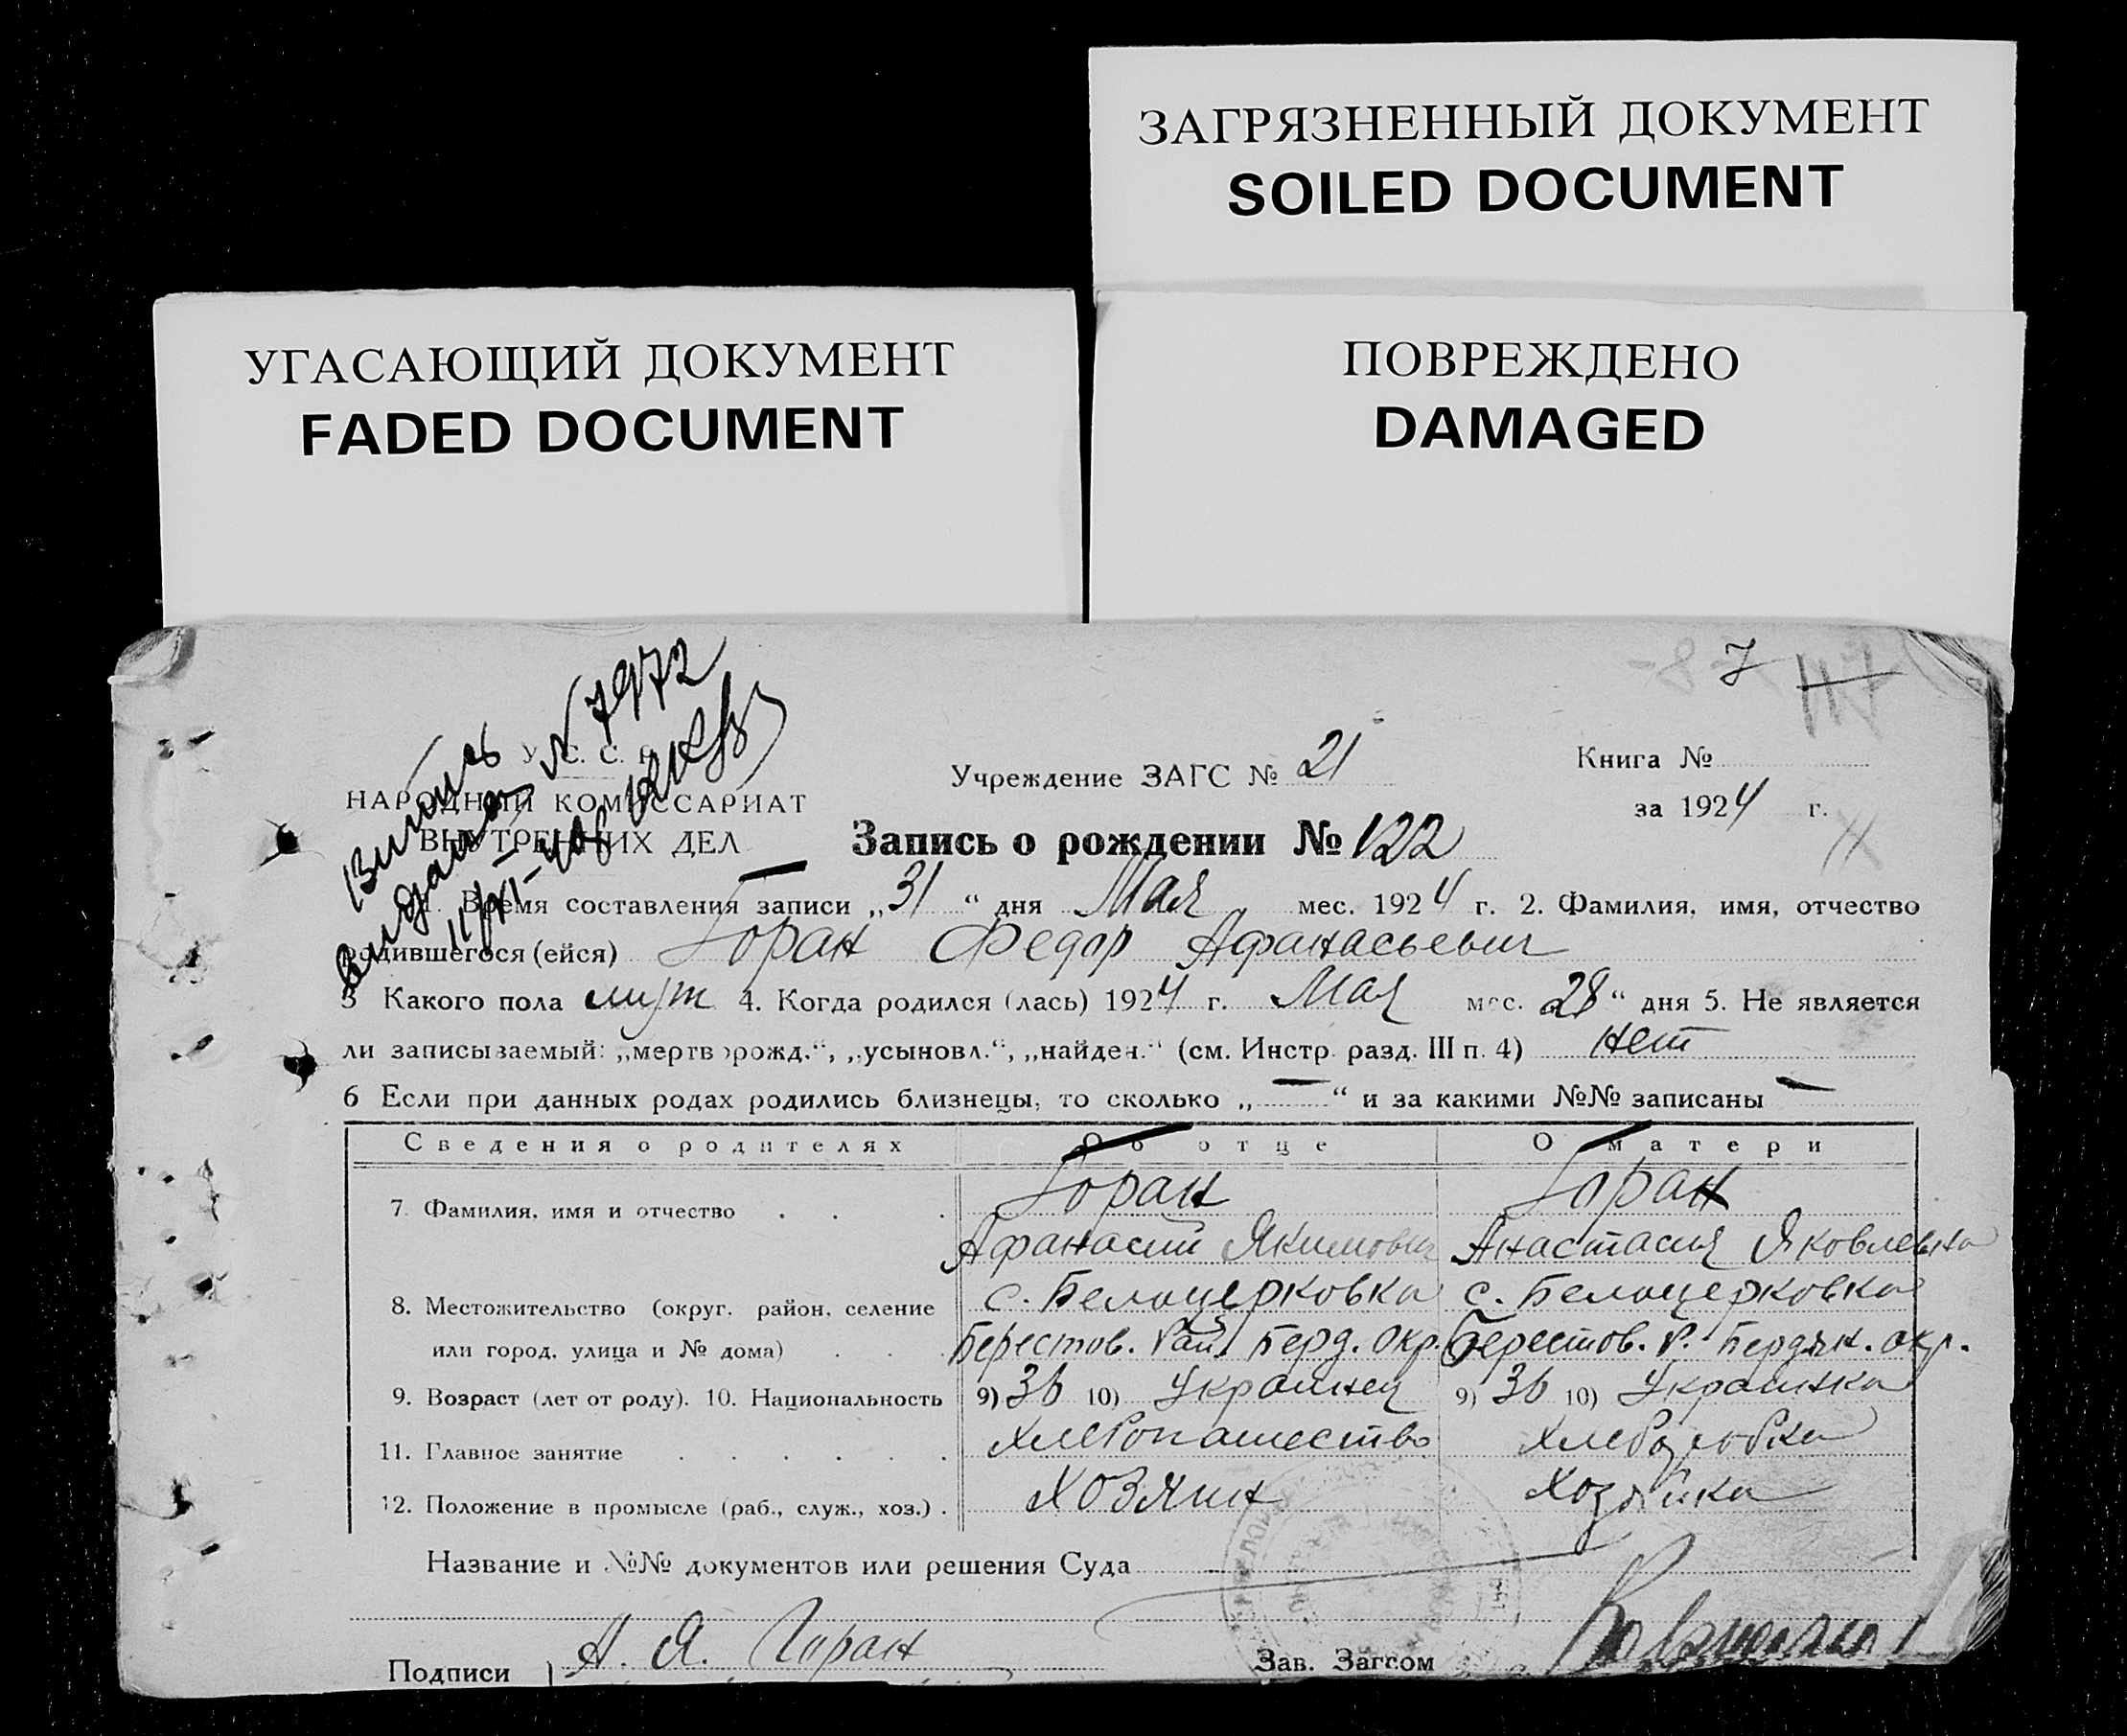 ЗАГРЯЗНЕННЫЙ ДОКУМЕНТ
SOILED DOCUMENT
УГАСАЮЩИЙ ДОКУМЕНТ
FADED DOCUMENT
ПОВРЕЖДЕНО
DAMAGED
7
У. С. С. Р.
НАРОДНЫЙ КОМИССАРИАТ
ВНУТРЕННИХ ДЕЛ
№ 7972
Учреждение ЗАГС № 21
Книга №
за 1924 г.
Запись о рождении № 122
Время составления записи „31“ дня Мая мес. 1924 г. 2. Фамилия, имя, отчество
родившегося (ейся) Горан Федор Афанасьевич
3 Какого пола муж 4. Когда родился (лась) 1924 г. Мая мес. 28“ дня 5. Не является
ли записываемый: „мертворожд.“, „усыновл.“, „найден.“ (см. Инстр. разд. III п. 4) нет
6 Если при данных родах родились близнецы, то сколько „—“ и за какими №№ записаны —
Сведения о родителях Об отце О матери
7. Фамилия, имя и отчество . . . Горан Горан
Афанасий Якимович Анастасия Яковлевна
8. Местожительство (округ, район, селение с. Белоцерковка с. Белоцерковка
или город, улица и № дома) . . . Берестов. Рай. Берд. окр. Берестов. Р. Бердян. окр.
9. Возраст (лет от роду). 10. Национальность 9) 36 10) Украинец 9) 36 10) Украинка
11. Главное занятие . . . . . . Хлебопашество Хлеборобка
12. Положение в промысле (раб., служ., хоз.) . Хозяин Хозяйка
Название и №№ документов или решения Суда
Подписи А. Я. Горан Зав. Загсом